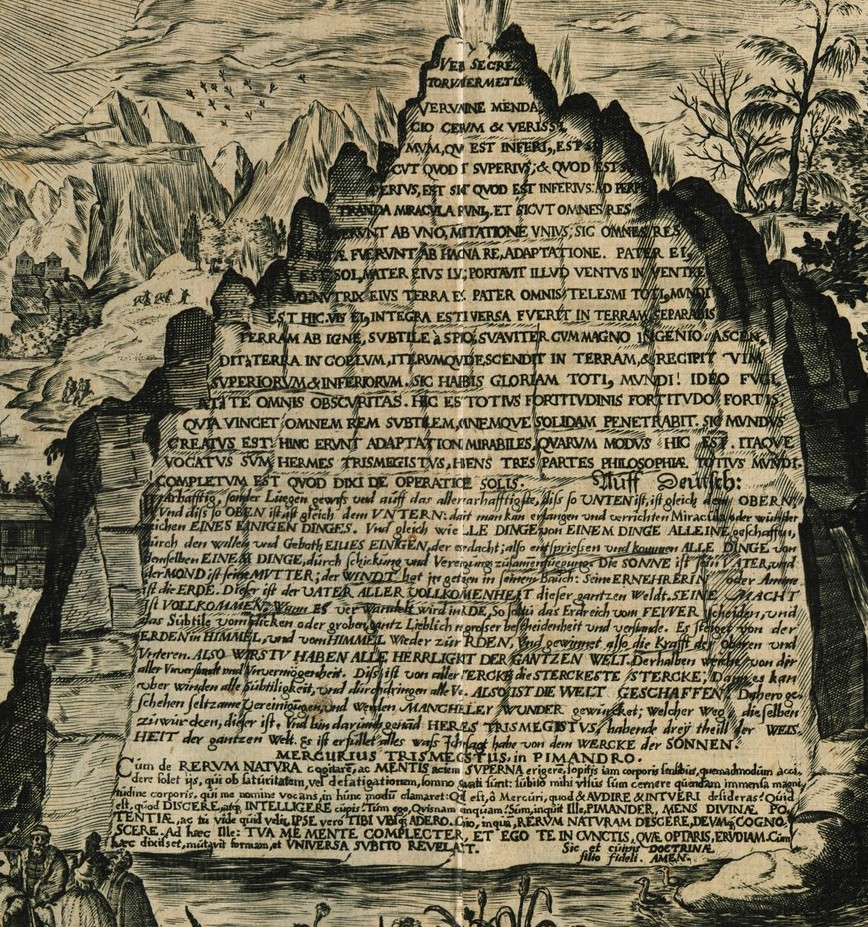 VERA SECRE
TORUM HERMETIS
VERVM, SINE MENDA
CIO CERTVM & VERISSI
MVM, QVOD EST INFERIVS, EST S
ICVT QVOD EST SVPERIVS; & QVOD EST S
VPERIVS, EST SICVT QVOD EST INFERIVS: AD PERPE
TRANDA MIRACVLA REI VNIVS, ET SICVT OMNES RES
FVERVNT AB VNO, MEDITATIONE VNIVS; SIC OMNES RES
NATÆ FVERVNT AB HAC VNA RE, ADAPTATIONE. PATER EI,
EST SOL, MATER EIVS LVNA; PORTAVIT ILLVD VENTVS IN VENTRE
SVO: NVTRIX EIVS TERRA EST. PATER OMNIS TELESMI TOTI, MVNDI
EST HIC. VIS EI, INTEGRA EST SI VERSA FVERIT IN TERRAM, SEPARABIS
TERRAM AB IGNE, SVBTILE à SPISSO, SVAVITER CVM MAGNO INGENIO. ASCEN,
DIT à TERRA IN COELVM, ITERVMQVE DESCENDIT IN TERRAM, & RECIPIT VIM
SVPERIORVM & INFERIORVM. SIC HABEBIS GLORIAM TOTI, MVNDI! IDEO FVGI,
AT à TE OMNIS OBSCVRITAS. HIC EST TOTIVS FORTITVDINIS FORTITVDO FORTIS
QVIA VINCET OMNEM REM SVBTILEM, OMNEMQVE SOLIDAM PENETRABIT. SIC MVNDVS
CREATVS EST. HINC ERVNT ADAPTATIONES MIRABILES, QVARVM MODVS HIC EST. ITAQVE
VOCATVS SVM HERMES TRISMEGISTVS, HABENS TRES PARTES PHILOSOPHIÆ TOTIVS MVNDI.
COMPLETVM EST QVOD DIXI DE OPERATIONE SOLIS. Auff Deutsch:
Warhafftig, sonder Liegen gewiss und auff das allerwarhafftigste, diss so UNTEN ist, ist gleich dem OBERN,
Und diss so OBEN ist, ist gleich dem UNTERN: damit man kan erlangen und verrichten Miracula oder wunder
zeichen EINES EINIGEN DINGES. Und gleich wie ALLE DINGE von EINEM DINGE ALLEINE geschaffen,
durch den willen und Geboth EINES EINIGEN, der es bedacht; also entspriessen und kommen ALLE DINGE von
demselben EINEM DINGE, durch schickung und Vereinigung zusammenfügung. Die SONNE ist sein VATER, und
der MOND ist seine MVTTER; der WINDT hat jn getragen in seinem Bauch: Seine ERNEHRERIN oder Amme
ist die ERDE. Dieser ist der VATER ALLER VOLLKOMENHEIT dieser gantzen Weldt. SEINE MACHT
Ist VOLLKOMMEN, Wann ES verwandelt wird in ERDE, So soltu das Erdreich vom FEWER scheiden, und
das Subtile vom dicken oder groben, gantz Lieblich mit grosser bescheidenheit und verstande. Es steiget von der
ERDEN in HIMMEL, und vom HIMMEL Wieder zür ERDEN, Und gewinnet also die Krafft der Obern und
Unteren. ALSO WIRSTV HABEN ALLE HERRLIGKEIT DER GANTZEN WELT. Derhalben weiche von dir
aller Unverstandt und Unvermögenheit. Diss ist von aller STERCKE die STERCKESTE STERCKE, Dann es kan
uber winden alle subtiligkeit, und durchdringen alle Veste. ALSO IST DIE WELT GESCHAFFEN, Dahero ge,
schehen seltzame Vereinigungen, und werden MANCHELEY WUNDER gewürcket; Welcher Weg dieselben
zü würcken, dieser ist. Und bin darumb genand HERMES TRISMEGISTVS, habende drey theill der WEIS,
HEIT der gantzen Welt. Es ist erfüllet alles wass Ich gesagt habe von dem WERCKE der SONNEN.
MERCURIUS TRISMEGISTUS, in PIMANDRO.
Cum de RERVM NATVRA cogitarem, ac MENTIS aciem ad SVPERNA erigerem, sopitis iam corporis sensibus, quemadmodum acci,
dere solet ijs, qui ob saturitatem, vel defatigationem, somno gravati sunt: subito mihi visus sum cernere quendam immensa magni,
tudine corporis, qui me nomine vocans, in hunc modum clamaret: Quid est, ô Mercuri, quod & AVDIRE & INTVERI desideras? Quid
est, quod DISCERE, atq. INTELLIGERE cupis? Tum ego, Quisnam es inquam? Sum, inquit Ille, PIMANDER, MENS DIVINÆ PO,
TENTIÆ, ac tu vide quid velis, IPSE vero TIBI VBIq ADERO. Cupio, inquam, RERVM NATURAM DISCERE, DEVMq COGNO,
SCERE. Ad hæc Ille: TVA ME MENTE COMPLECTERE, ET EGO TE IN CVNCTIS, QVÆ OPTARIS, ERVDIAM. Cum
hæc dixisset, mutavit formam, et VNIVERSA SVBITO REVELAVIT.
Sic et cuivis DOCTRINÆ
filio fideli. AMEN.